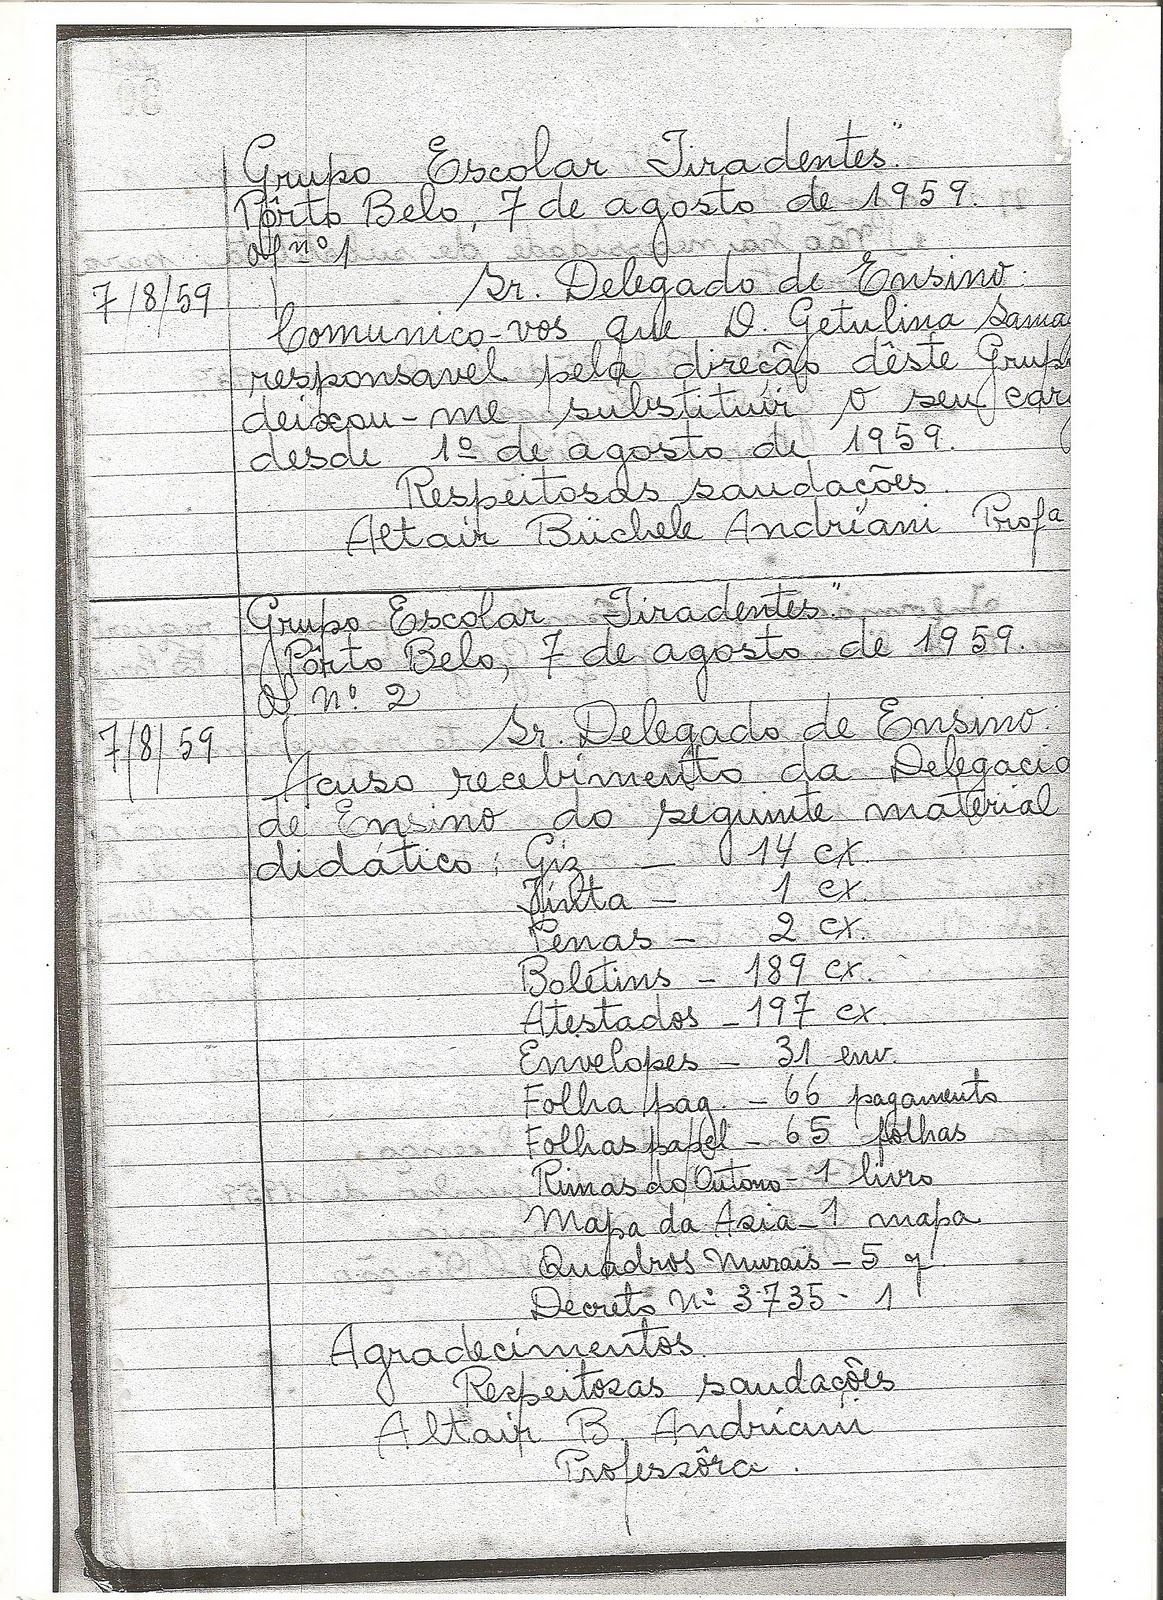 Grupo Escolar Tiradentes"
Pôrto Belo, 7 de agosto de 1959.
Of nº 1
7/8/59 Sr. Delegado de Ensino:
Comunico-vos que D. Getulina
responsavel pela direção dêste Grup
deixou-me substituir o seu car
desde 1º de agosto de 1959.
Respeitosas saudações.
Altair Büchele Andriani Profa
Grupo Escolar Tiradentes"
Pôrto Belo, 7 de agosto de 1959.
Of. nº 2
7/8/59 Sr. Delegado de Ensino:
Acuso recebimento da Delegacia
de Ensino do seguinte material
didático: Giz — 14 cx.
Tinta — 1 cx.
Penas — 2 cx.
Boletins — 189 ex.
Atestados — 197 ex.
Envelopes — 31 env.
Folha pag. — 66 pagamento
Folhas papel — 65 folhas
Rimas do Outono - 1 livro
Mapa da Asia - 1 mapa
Quadros Murais - 5 q.
Decreto Nº 3735 - 1
Agradecimentos.
Respeitosas saudações
Altair B. Andriani
Professôra.